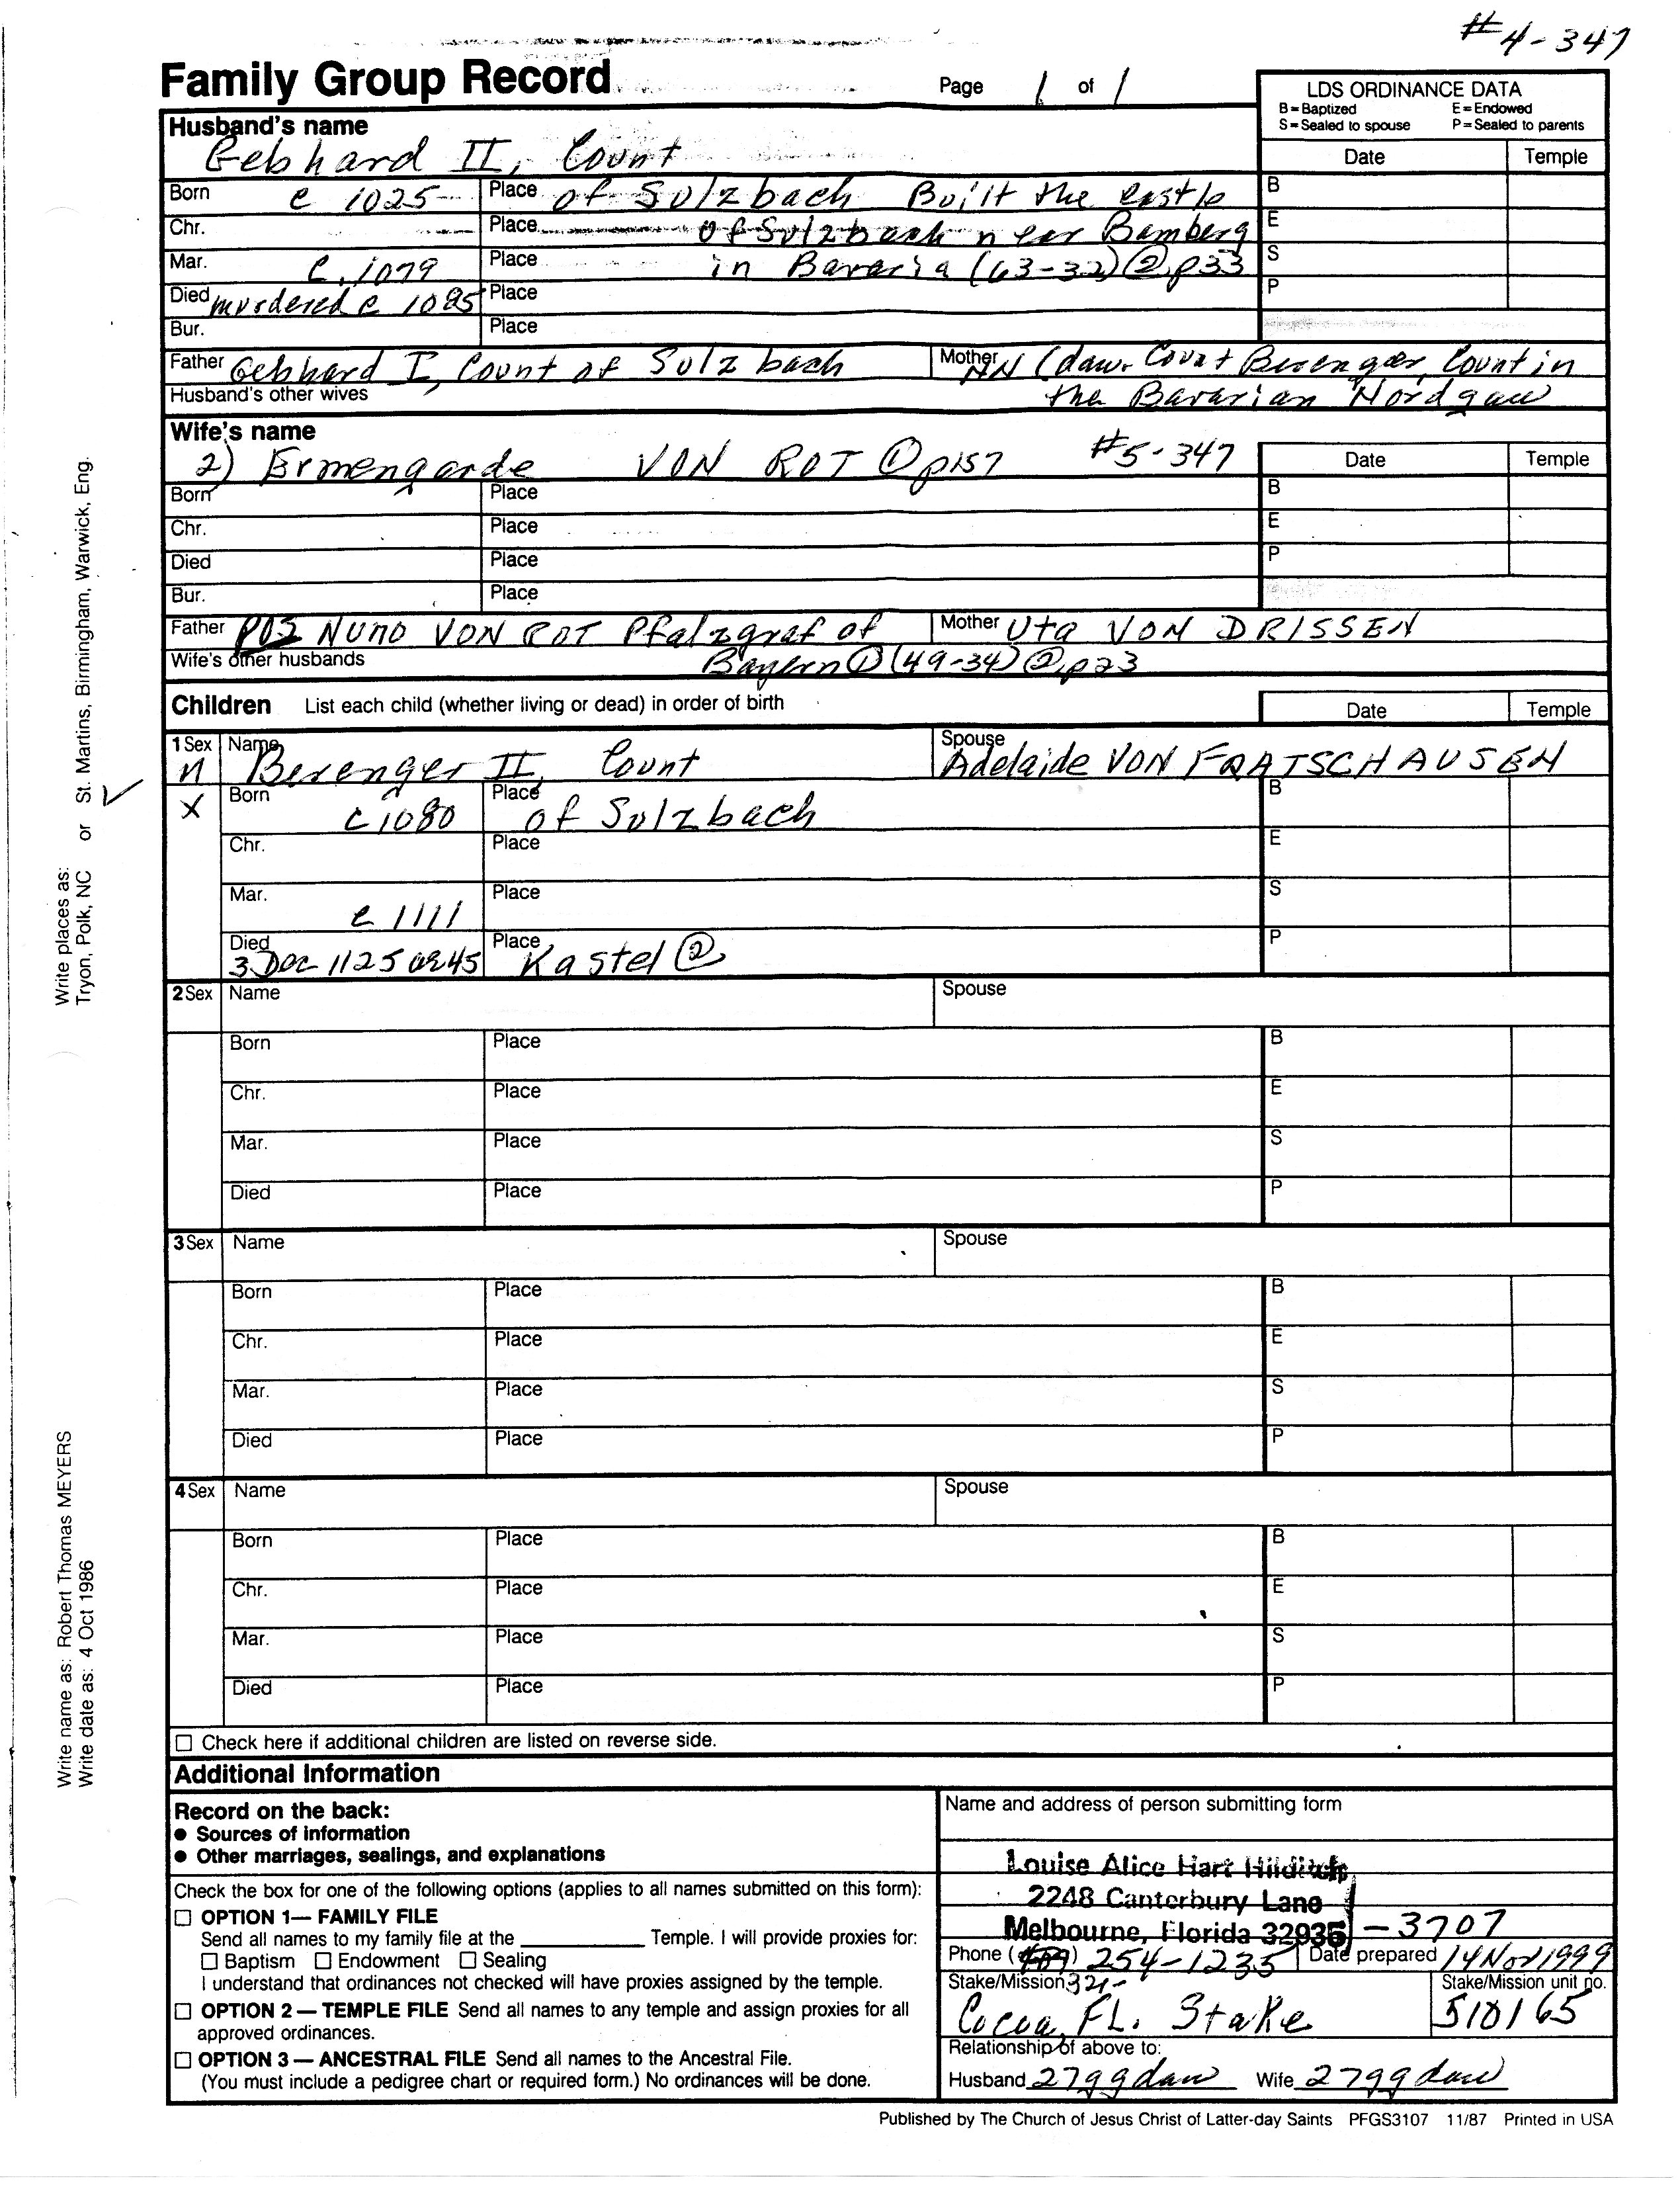 #4-347
Family Group Record Page 1 of 1
LDS ORDINANCE DATA
B=Baptized E=Endowed
S=Sealed to spouse P=Sealed to parents
Husband's name
Gebhard II, Count
Date Temple
Born c 1025 Place of Sulzbach Built the castle B
Chr. Place of Sulzbach near Bamberg E
Mar. C. 1079 Place in Bavaria (63-32) ② p33 S
Died murdered c 1085 Place P
Bur. Place
Father Gebhard I, Count of Sulzbach Mother NN (daw. Count Berenger, Count in
Husband's other wives the Bavarian Nordgau
Wife's name
2) Ermengarde VON ROT ① p157 #5-347 Date Temple
Born Place B
Chr. Place E
Died Place P
Bur. Place
Father POS NUNO VON ROT Pfalzgraf of Mother Uta VON DRISSEN
Wife's other husbands Bayern ① (49-34) ② p23
Children List each child (whether living or dead) in order of birth Date Temple
1 Sex Name Spouse
M Berenger II, Count Adelaide VON FRATSCHAUSEN
X Born c 1080 Place of Sulzbach B
Chr. Place E
Mar. c 1111 Place S
Died 3 Dec 1125 Place Kastel ② P
2 Sex Name Spouse
Born Place B
Chr. Place E
Mar. Place S
Died Place P
3 Sex Name Spouse
Born Place B
Chr. Place E
Mar. Place S
Died Place P
4 Sex Name Spouse
Born Place B
Chr. Place E
Mar. Place S
Died Place P
☐ Check here if additional children are listed on reverse side.
Additional Information
Record on the back:
● Sources of information
● Other marriages, sealings, and explanations
Check the box for one of the following options (applies to all names submitted on this form):
☐ OPTION 1— FAMILY FILE
Send all names to my family file at the ____________ Temple. I will provide proxies for:
☐ Baptism ☐ Endowment ☐ Sealing
I understand that ordinances not checked will have proxies assigned by the temple.
☐ OPTION 2 — TEMPLE FILE Send all names to any temple and assign proxies for all
approved ordinances.
☐ OPTION 3 — ANCESTRAL FILE Send all names to the Ancestral File.
(You must include a pedigree chart or required form.) No ordinances will be done.
Name and address of person submitting form
Louise Alice Hart Hilditch
2248 Canterbury Lane
Melbourne, Florida 32935-3707
Phone (409) 254-1235 Date prepared 14 Nov 1999
Stake/Mission 321- Stake/Mission unit no.
Cocoa, FL. Stake 510165
Relationship of above to:
Husband 27ggdaw Wife 27ggdaw
Published by The Church of Jesus Christ of Latter-day Saints PFGS3107 11/87 Printed in USA
Write places as: Tryon, Polk, NC or St. Martins, Birmingham, Warwick, Eng.
Write name as: Robert Thomas MEYERS
Write date as: 4 Oct 1986